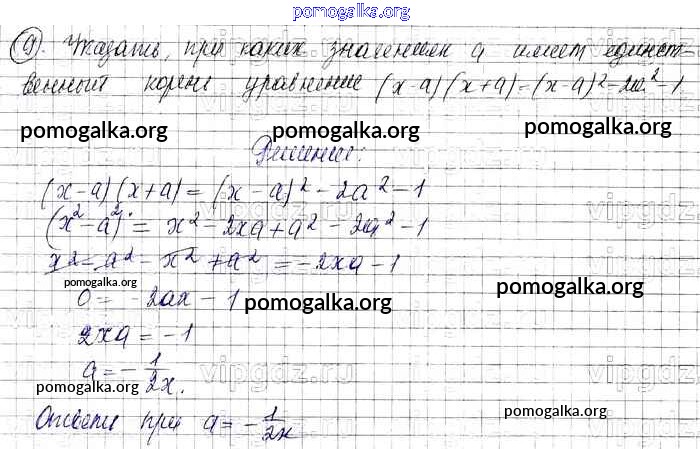 pomogalka.org
9). Указать, при каких значениях а имеет единст-
венный корень уравнение (x-a)(x+a)=(x-a)²-2a²-1
pomogalka.org pomogalka.org pomogalka.org
Решение:
(x-a)(x+a) = (x-a)²-2a²-1
(x²-a²) = x²-2xa+a²-2a²-1
x²-a²-x²+a² = -2xa-1
pomogalka.org
0 = -2ax-1
pomogalka.org pomogalka.org
2xa = -1
vipgdz.ru
a = -1/2x.
pomogalka.org
pomogalka.org
Ответ: при a = -1/2x